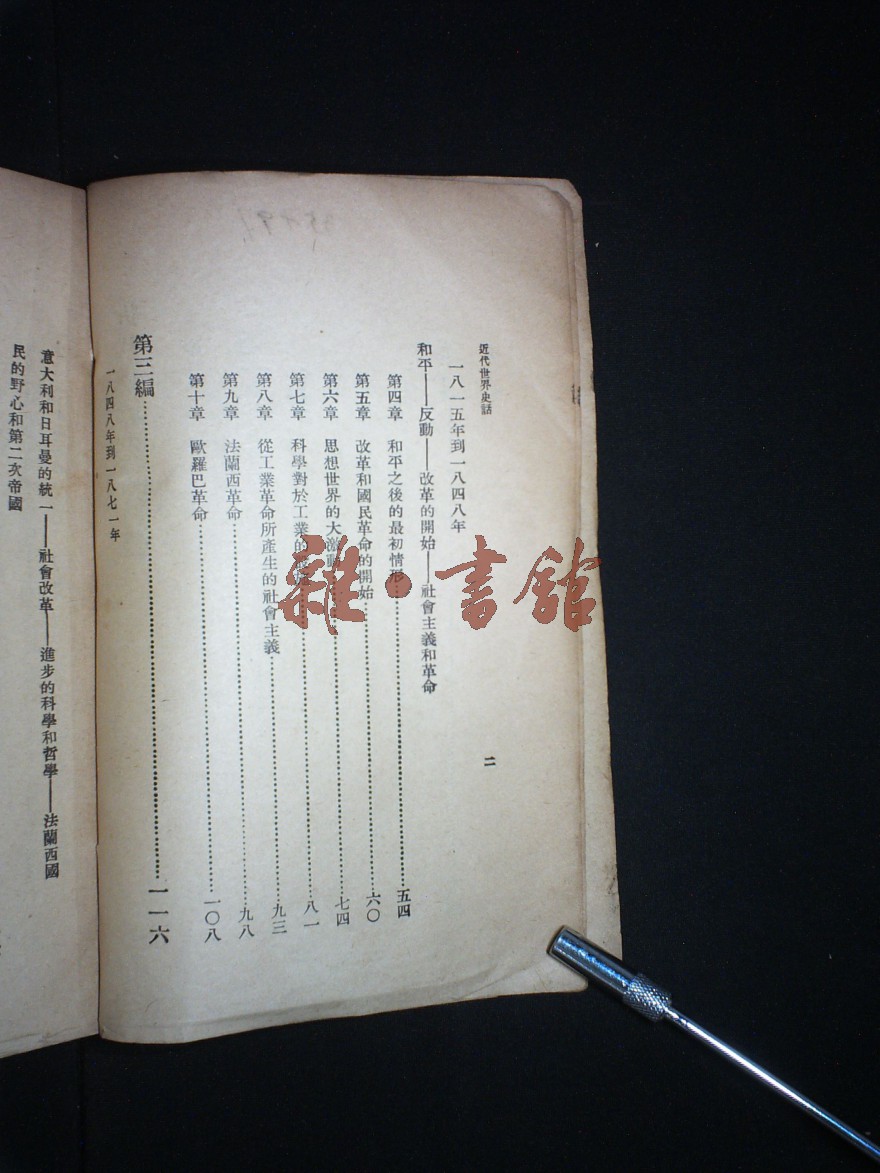 近代世界史話
二
一八一五年到一八四八年
和平——反動——改革的開始——社會主義和革命
第四章 和平之後的最初情形 五四
第五章 改革和國民革命的開始 六〇
第六章 思想世界的大激動 七四
第七章 科學對於工業的 八一
第八章 從工業革命所產生的社會主義 九三
第九章 法蘭西革命 九八
第十章 歐羅巴革命 一〇八
第三編 一一六
一八四八年到一八七一年
意大利和日耳曼的統一——社會改革——進步的科學和哲學——法蘭西國
民的野心和第二次帝國
雜·書館